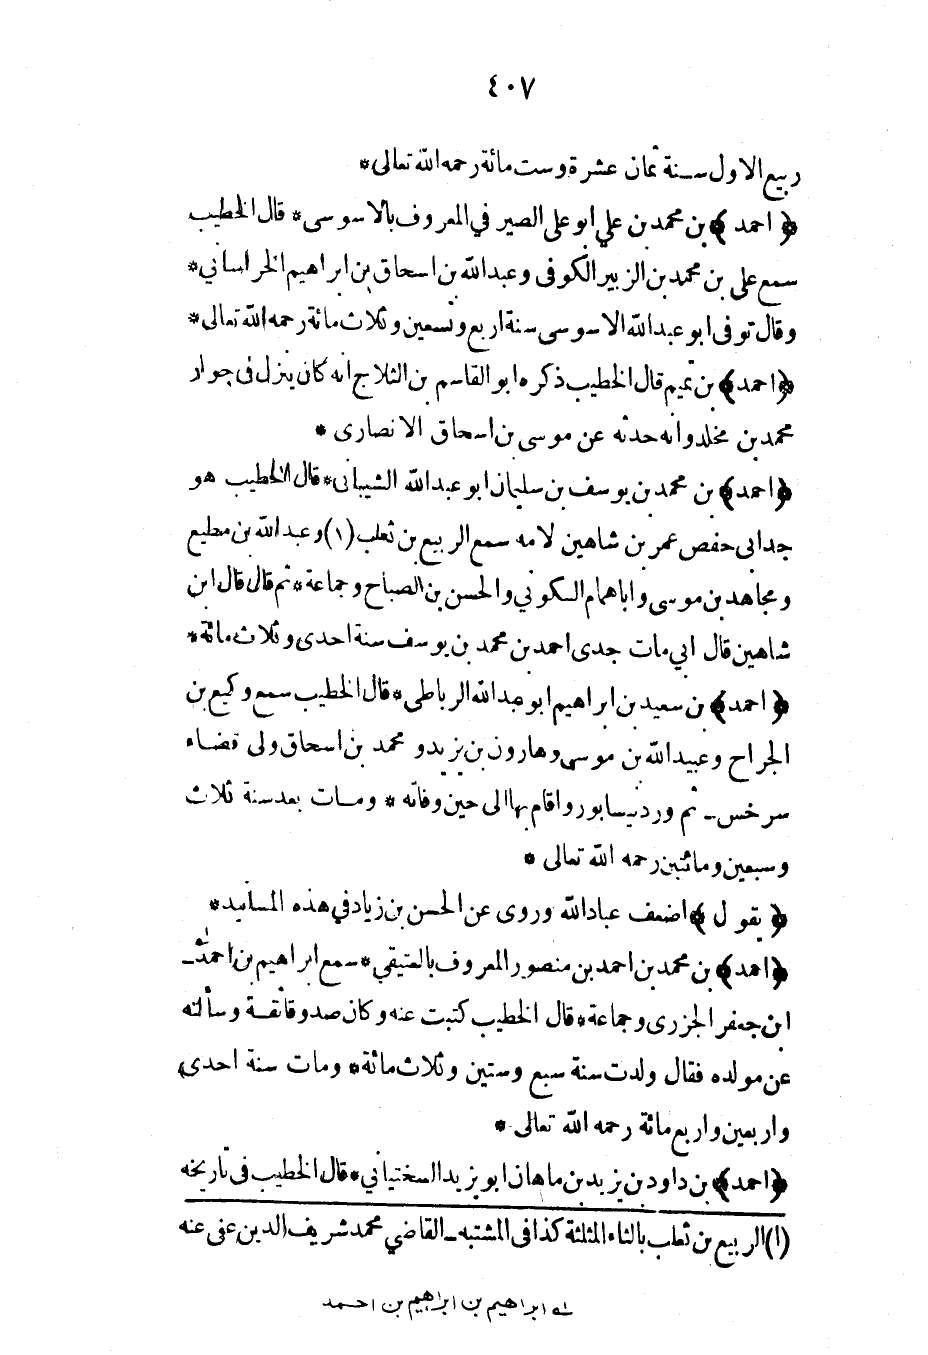 ٤٠٧
ربيع الاول سنة ثمان عشرة وست مائة رحمه الله تعالى*
﴿ احمد ﴾ بن محمد بن علي ابو على الصير في المعروف بالاسوسى* قال الخطيب
سمع على بن محمد بن الزبير الكوفى وعبدالله بن اسحاق بن ابراهيم الخراساني*
وقال توفى ابو عبدالله الاسوسى سنة اربع وتسعين وثلاث مائة رحمه الله تعالى*
﴿احمد﴾ بن تميم قال الخطيب ذكره ابو القاسم بن الثلاج انه كان ينزل فى جوار
محمد بن مخلد وانه حدثه عن موسى بن اسحاق الانصارى *
﴿احمد﴾ بن محمد بن يوسف بن سليمان ابو عبدالله الشيبانى* قال الخطيب هو
جد ابى حفص عمر بن شاهين لامه سمع الربيع بن ثعلب (١) وعبدالله بن مطيع
ومجاهد بن موسى واباهمام السكوني والحسن بن الصباح وجماعة* ثم قال قال ابن
شاهين قال ابي مات جدى احمد بن محمد بن يوسف سنة احدى وثلاث مائة*
﴿ احمد﴾ بن سعيد بن ابراهيم ابو عبدالله الرباطى* قال الخطيب سمع وكيع بن
الجراح وعبيدالله بن موسى وهارون بن يزيد و محمد بن اسحاق ولى قضاء
سرخس ـ ثم ورد نيسابور واقام بها الى حين وفاته * ومات بعد سنة ثلاث
وسبعين ومائتين رحمه الله تعالى *
﴿ يقول ﴾ اضعف عبادالله وروى عن الحسن بن زياد في هذه المسانيد*
﴿احمد﴾ بن محمد بن احمد بن منصور المعروف بالعتيقي* سمع ابراهيم بن احمد ـ
ابن جعفر الجزرى وجماعة* قال الخطيب كتبت عنه وكان صدوقا ثقة وسألته
عن مولده فقال ولدت سنة سبع وستين وثلاث مائة* ومات سنة احدى
واربعين واربع مائة رحمه الله تعالى *
﴿احمد﴾ بن داود بن يزيد بن ماهان ابو يزيد السختياني* قال الخطيب فى تاريخه
(١) الربيع بن ثعلب بالثاء المثلثة كذا فى المشتبه ـ القاضي محمد شريف الدين عفى عنه
له ابراهيم بن ابراهيم بن احمد